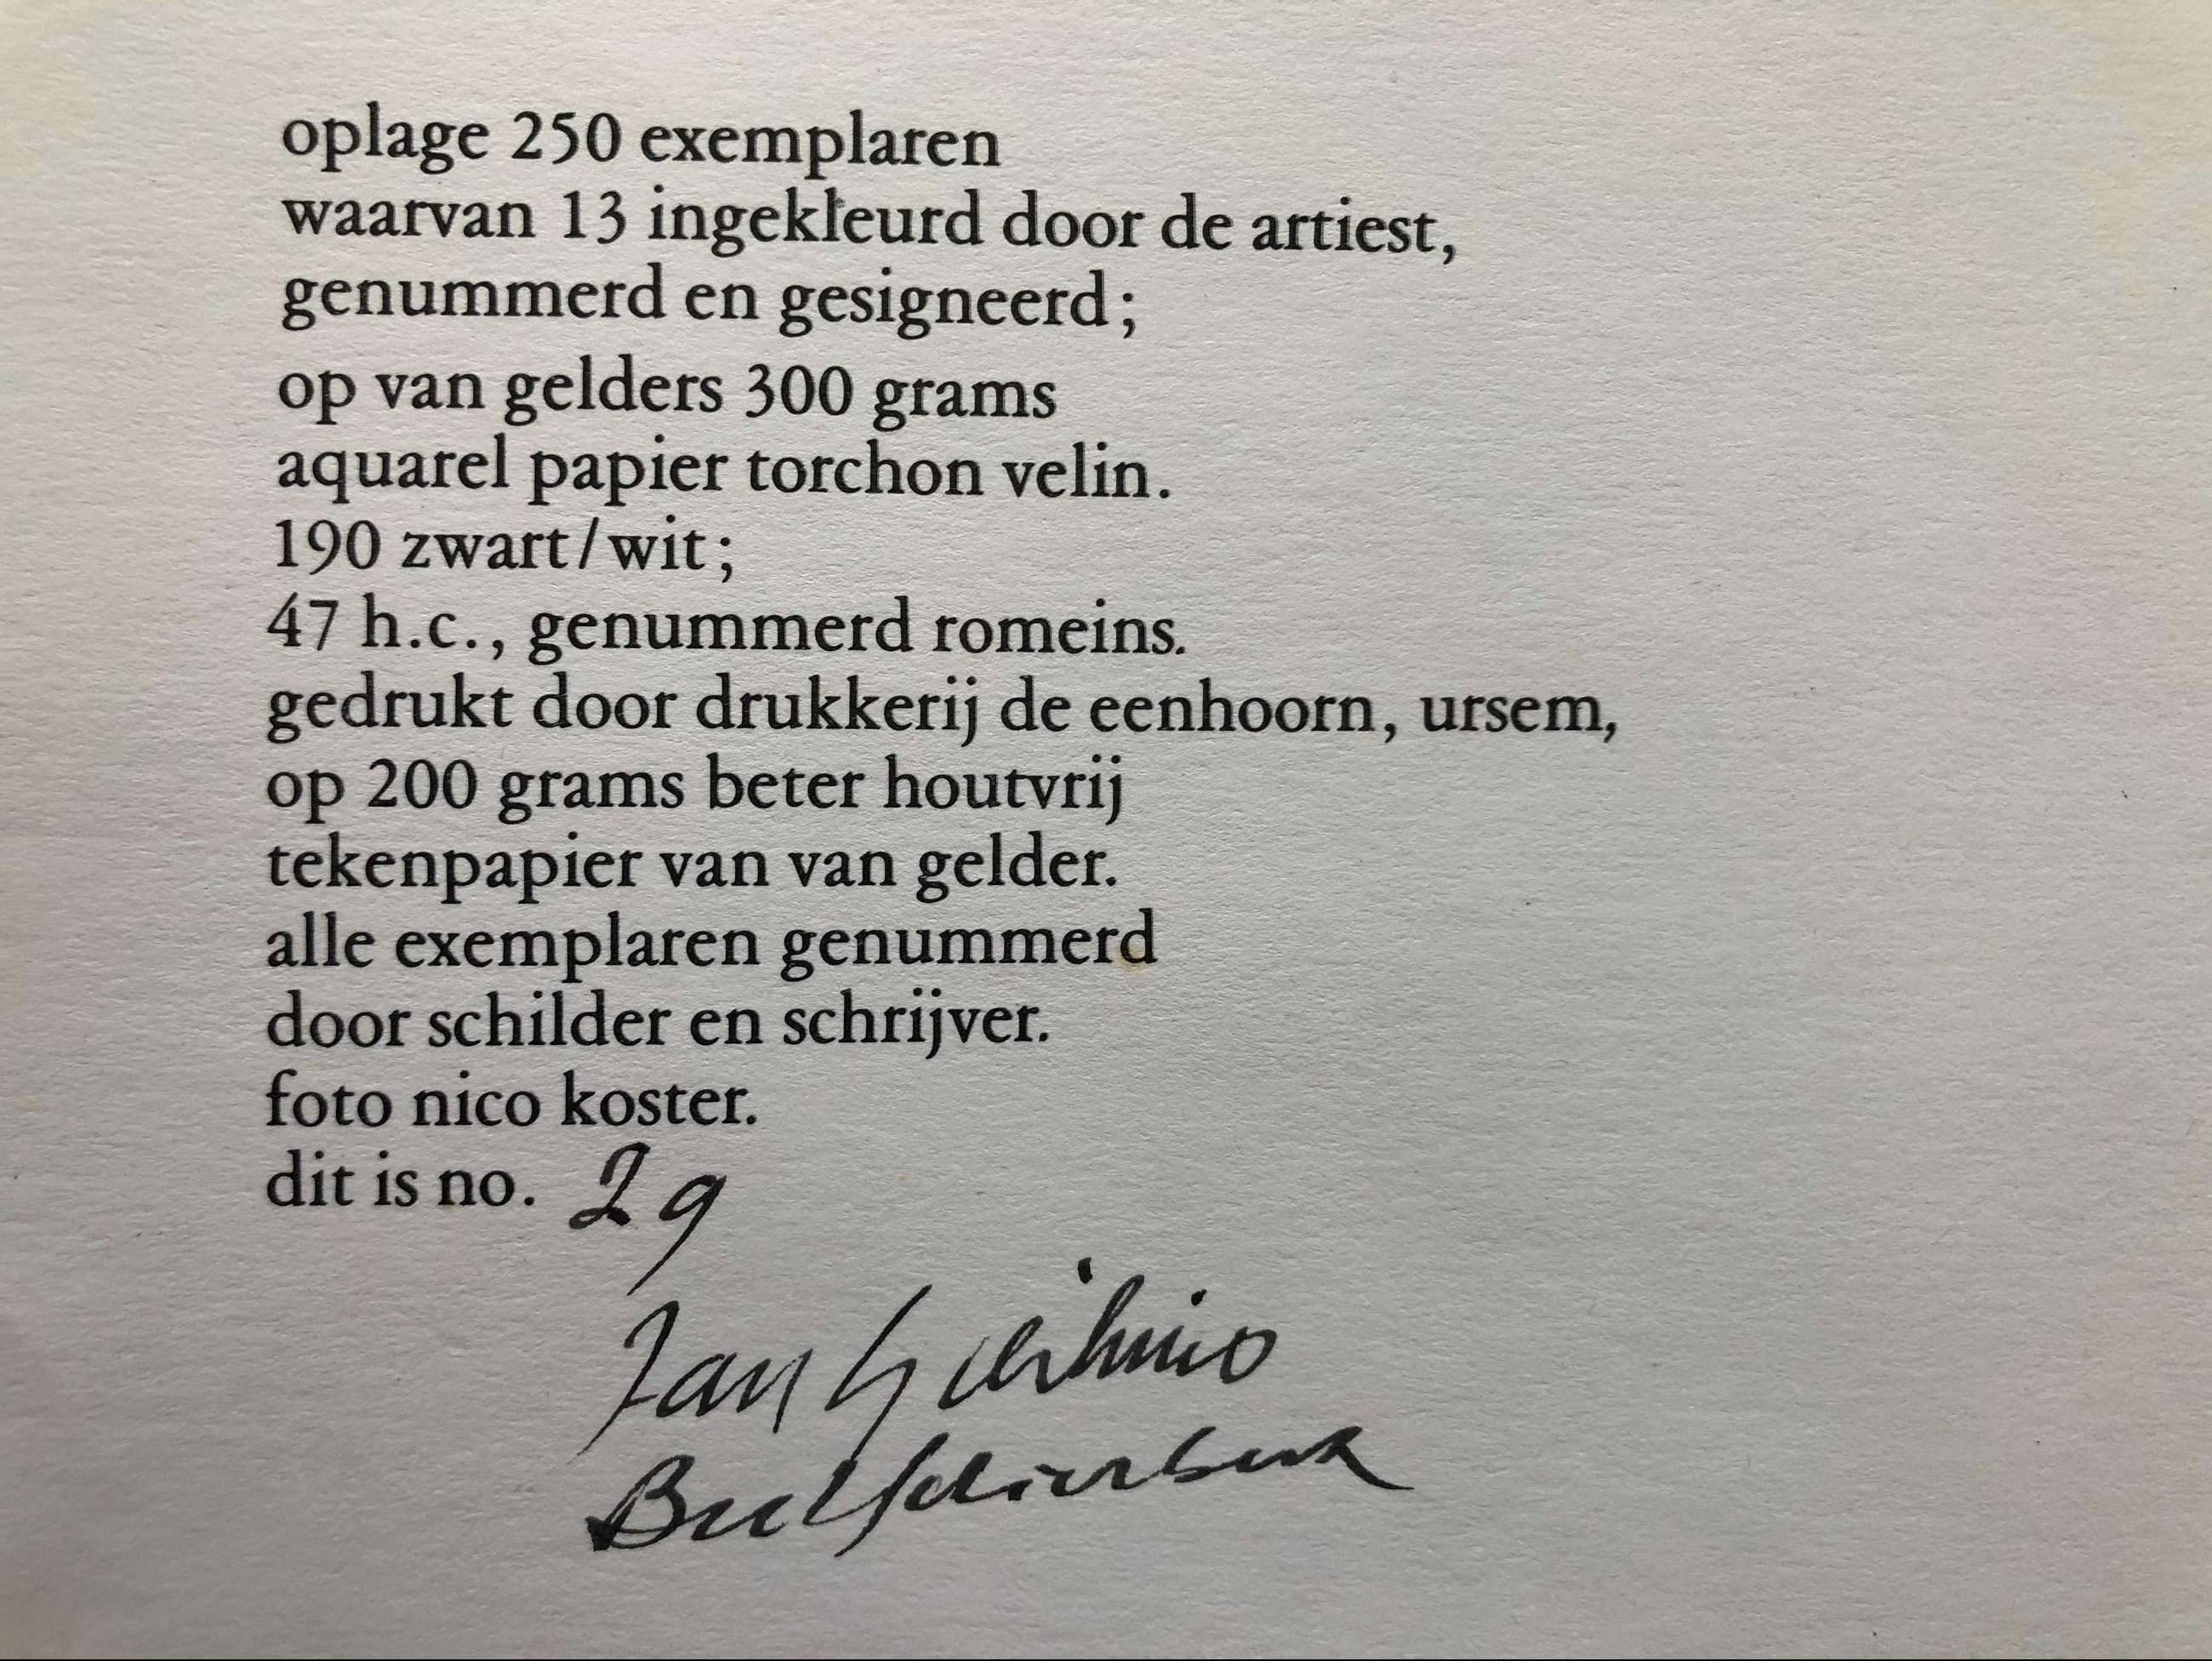 oplage 250 exemplaren
waarvan 13 ingekleurd door de artiest,
genummerd en gesigneerd;
op van gelders 300 grams
aquarel papier torchon velin.
190 zwart/wit;
47 h.c., genummerd romeins.
gedrukt door drukkerij de eenhoorn, ursem,
op 200 grams beter houtvrij
tekenpapier van van gelder.
alle exemplaren genummerd
door schilder en schrijver.
foto nico koster.
dit is no. 29
Jan
Bert Schierbeek